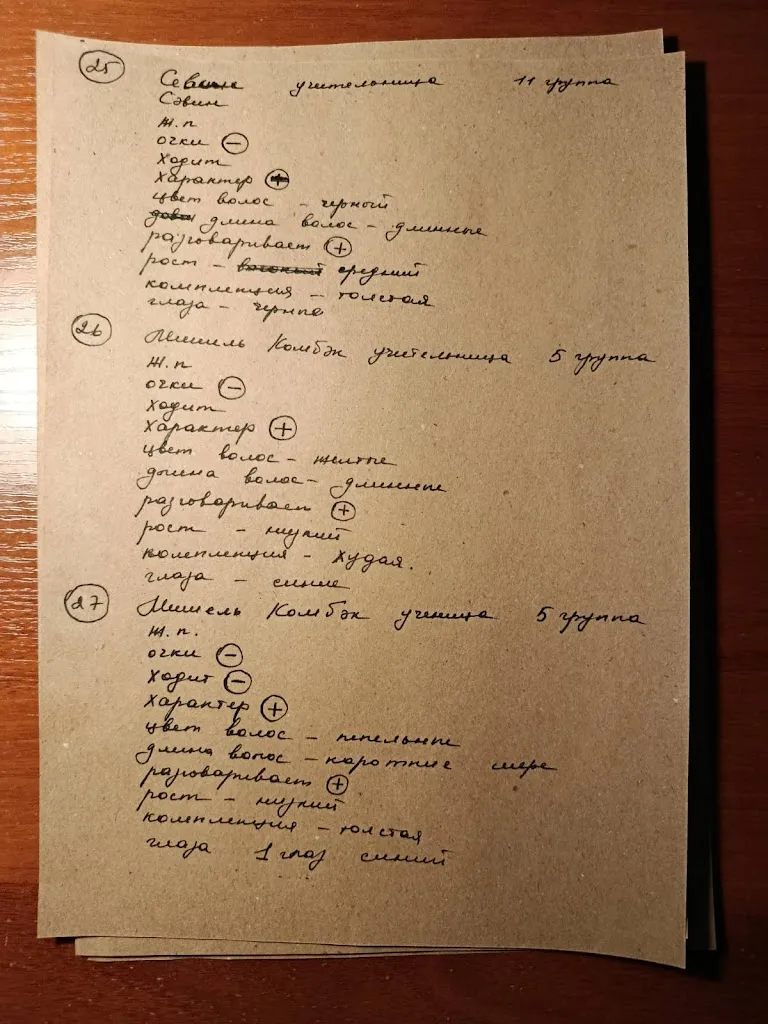 25 Севин учительница 11 группа
Сэвин
ж.п
очки −
ходит
характер +
цвет волос – черный
длина волос – длинные
разговаривает +
рост – высокий средний
комплекция – толстая
глаза – черные
26 Мишель Комбэк учительница 5 группа
ж.п
очки −
ходит
характер +
цвет волос – желтые
длина волос – длинные
разговаривает +
рост – низкий
комплекция – худая.
глаза – синие
27 Мишель Комбэк ученица 5 группа
ж.п.
очки −
ходит −
характер +
цвет волос – пепельные
длина волос – кароткие
разговаривает +
рост – низкий
комплекция – толстая
глаза 1 глаз синий